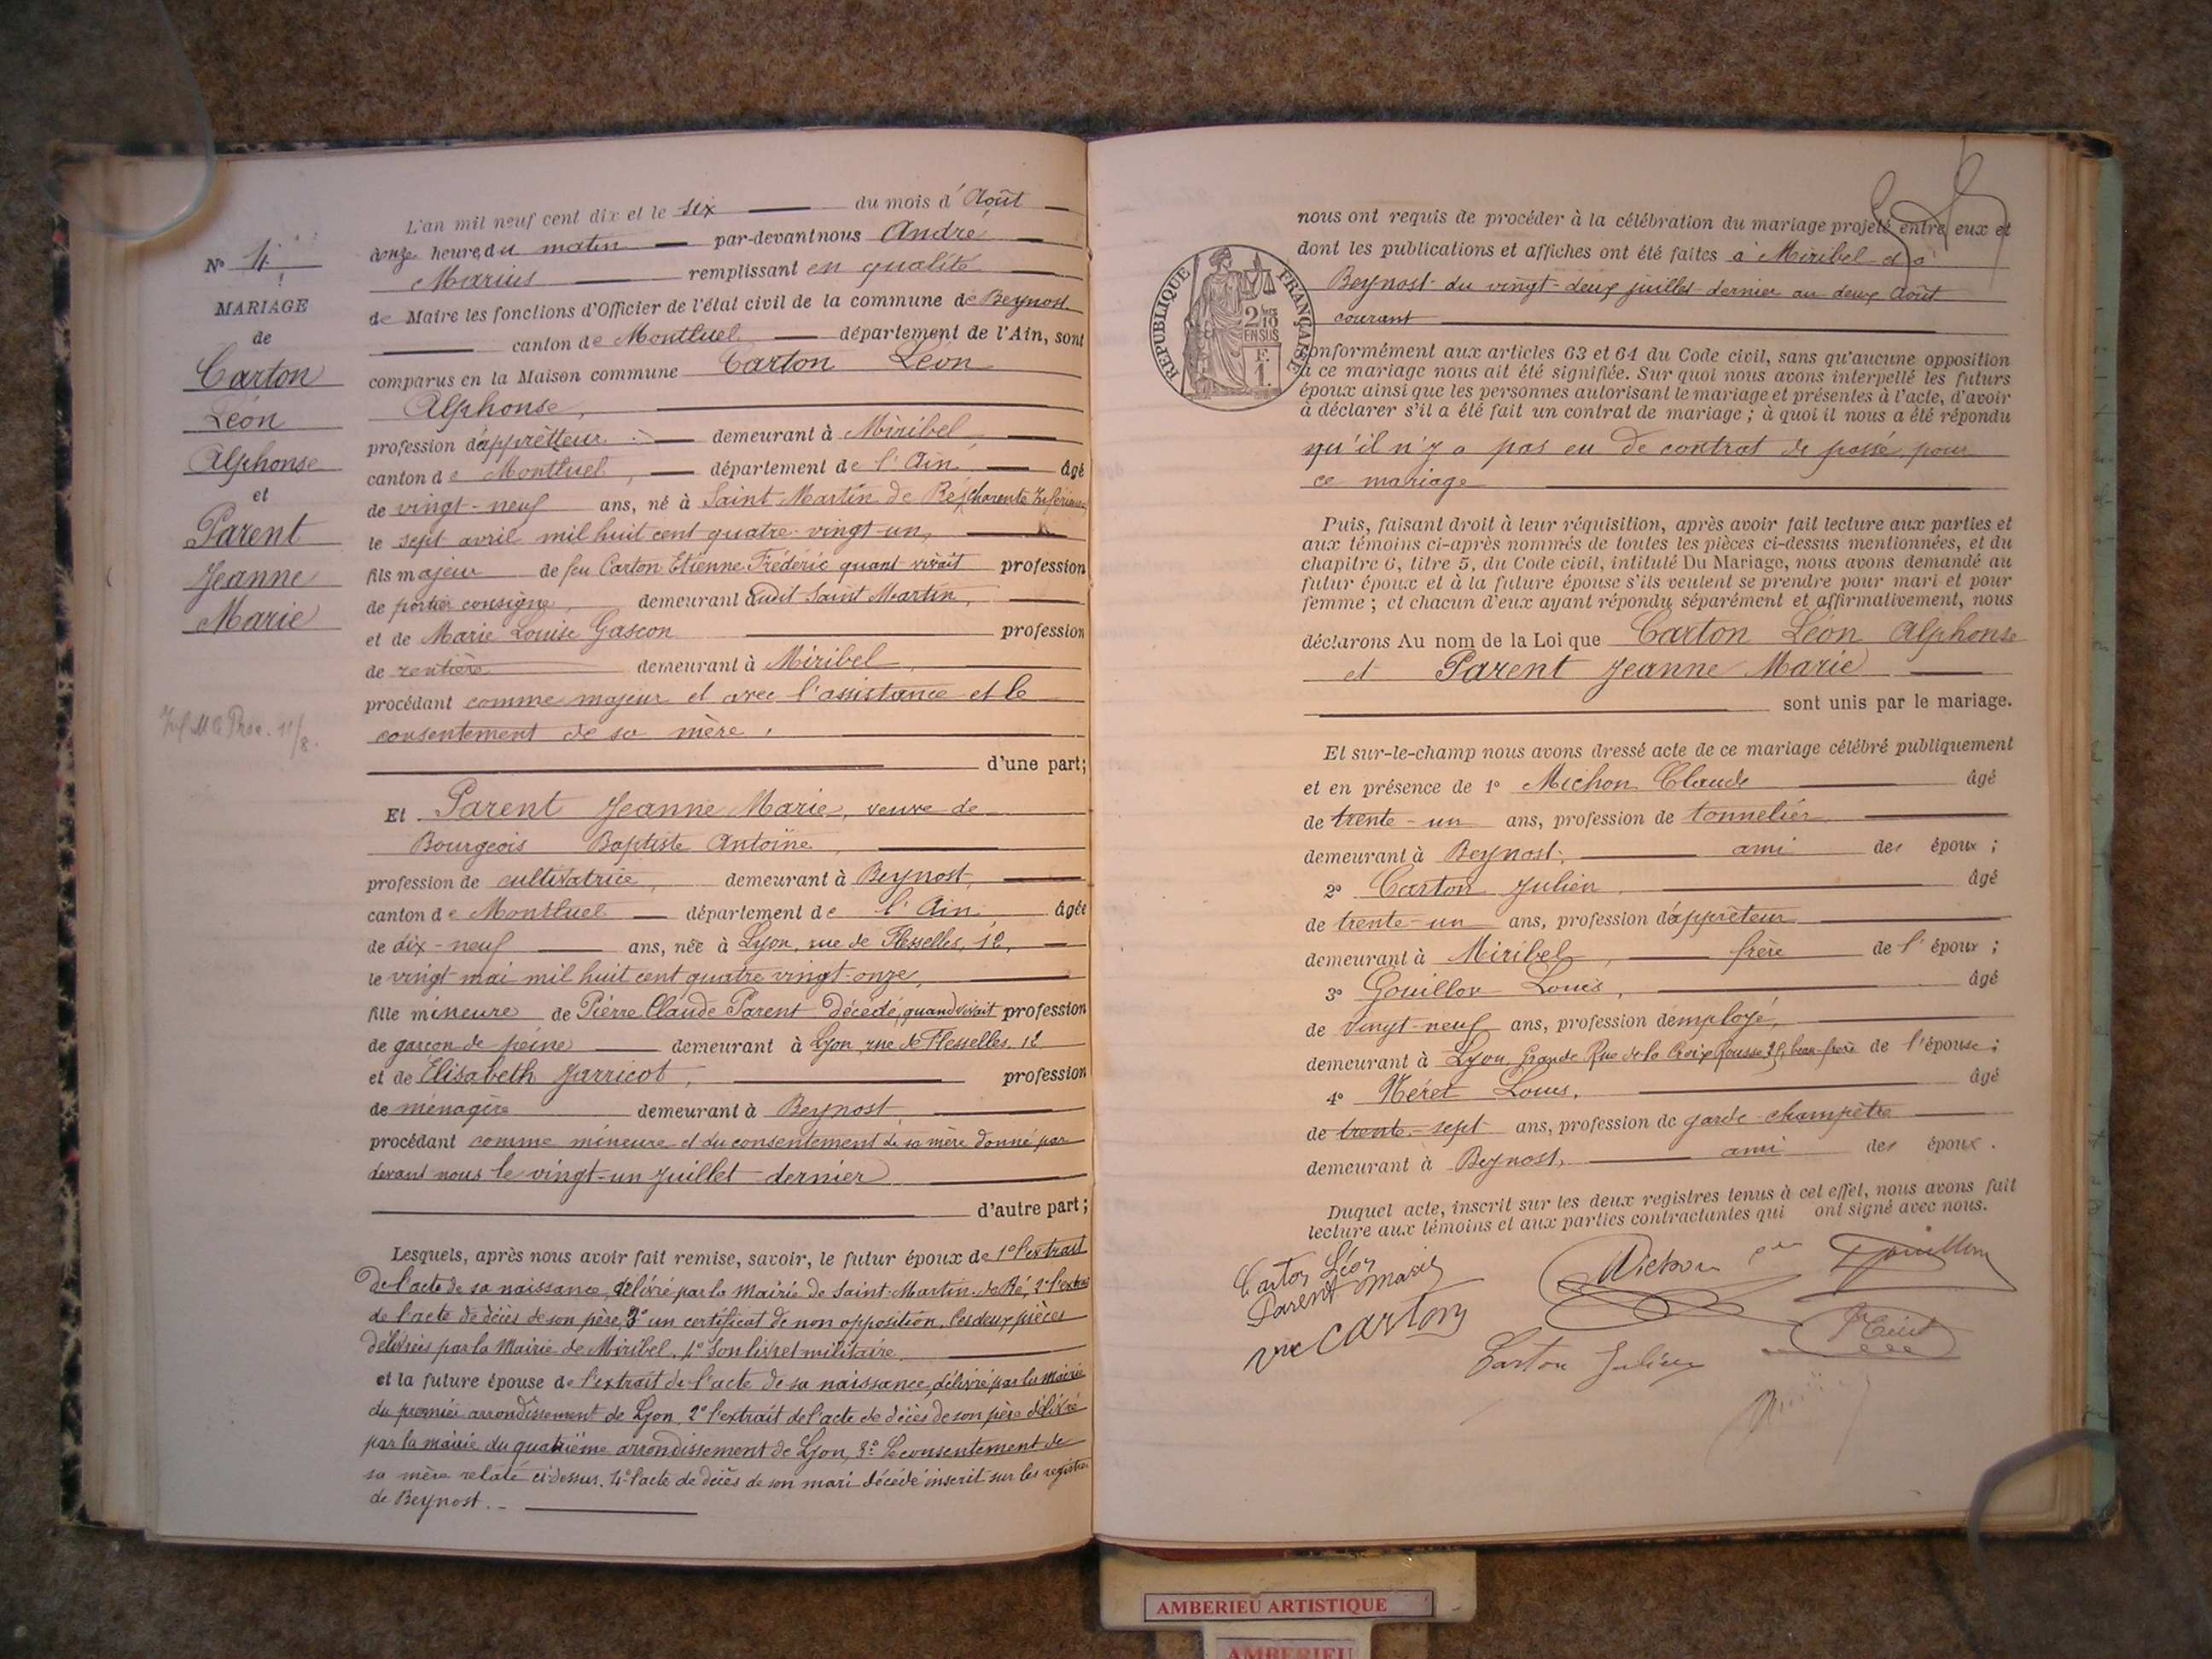 N° 4
MARIAGE
de
Carton
Léon
Alphonse
et
Parent
Jeanne
Marie
L'an mil neuf cent dix et le six du mois d'Août
à onze heure du matin par-devant nous André
Marius remplissant en qualité
de Maire les fonctions d'Officier de l'état civil de la commune de Beynost
canton de Montluel département de l'Ain, sont
comparus en la Maison commune Carton Léon
Alphonse,
profession d'apprêteur demeurant à Miribel
canton de Montluel, département de l'Ain âgé
de vingt-neuf ans, né à Saint Martin de Ré, Charente Inférieure
le sept avril mil huit cent quatre-vingt-un,
fils majeur de feu Carton Etienne Frédéric quant vivait profession
de portier consigne, demeurant audit Saint Martin,
et de Marie Louise Gascon profession
de rentière demeurant à Miribel
procédant comme majeur et avec l'assistance et le
consentement de sa mère.
d'une part;
Et Parent Jeanne Marie, veuve de
Bourgeois Baptiste Antoine,
profession de cultivatrice, demeurant à Beynost,
canton de Montluel département de l'Ain âgée
de dix-neuf ans, née à Lyon, rue de Flesselles, 12,
le vingt mai mil huit cent quatre vingt-onze,
fille mineure de Pierre Claude Parent décédé, quand vivait profession
de garçon de peine demeurant à Lyon, rue de Flesselles, 12
et de Élisabeth Jarricot, profession
de ménagère demeurant à Beynost,
procédant comme mineure et du consentement de sa mère donné par
devant nous le vingt-un Juillet dernier
d'autre part;
Lesquels, après nous avoir fait remise, savoir, le futur époux de 1° l'extrait
de l'acte de sa naissance, délivré par la Mairie de Saint-Martin-de-Ré, 2° l'extrait
de l'acte de décès de son père, 3° un certificat de non opposition, les deux pièces
délivrées par la Mairie de Miribel, 4° Son livret militaire.
et la future épouse de l'extrait de l'acte de sa naissance, délivré par la Mairie
du premier arrondissement de Lyon, 2° l'extrait de l'acte de décès de son père délivré
par la mairie du quatrième arrondissement de Lyon, 3° Le consentement de
sa mère relaté ci-dessus. 4° l'acte de décès de son mari décédé inscrit sur les registres
de Beynost.
RÉPUBLIQUE FRANÇAISE
2/10
EN SUS
F.
1.
nous ont requis de procéder à la célébration du mariage projeté entre eux et
dont les publications et affiches ont été faites à Miribel et à
Beynost du vingt-deux juillet dernier au deux Août
courant
Conformément aux articles 63 et 64 du Code civil, sans qu'aucune opposition
à ce mariage nous ait été signifiée. Sur quoi nous avons interpellé les futurs
époux ainsi que les personnes autorisant le mariage et présentes à l'acte, d'avoir
à déclarer s'il a été fait un contrat de mariage ; à quoi il nous a été répondu
qu'il n'y a pas eu de contrat de passé pour
ce mariage
Puis, faisant droit à leur réquisition, après avoir fait lecture aux parties et
aux témoins ci-après nommés de toutes les pièces ci-dessus mentionnées, et du
chapitre 6, titre 5, du Code civil, intitulé Du Mariage, nous avons demandé au
futur époux et à la future épouse s'ils veulent se prendre pour mari et pour
femme ; et chacun d'eux ayant répondu séparément et affirmativement, nous
déclarons Au nom de la Loi que Carton Léon Alphonse
et Parent Jeanne Marie
sont unis par le mariage.
Et sur-le-champ nous avons dressé acte de ce mariage célébré publiquement
et en présence de 1° Michon Claude âgé
de trente-un ans, profession de tonnelier
demeurant à Beynost, ami des époux ;
2° Carton Julien, âgé
de trente-un ans, profession d'apprêteur
demeurant à Miribel, frère de l'époux ;
3° Gouillon Louis, âgé
de vingt-neuf ans, profession d'employé,
demeurant à Lyon, Grande Rue de la Croix Rousse, beau-frère de l'épouse ;
4° Néret Louis, âgé
de trente-sept ans, profession de garde champêtre
demeurant à Beynost, ami des époux.
Duquel acte, inscrit sur les deux registres tenus à cet effet, nous avons fait
lecture aux témoins et aux parties contractantes qui ont signé avec nous.
Carton Léon
Parent Marie
Michon
Gouillon
vve Carton
Carton Julien
Néret
AMBERIEU ARTISTIQUE
AMBERIEU